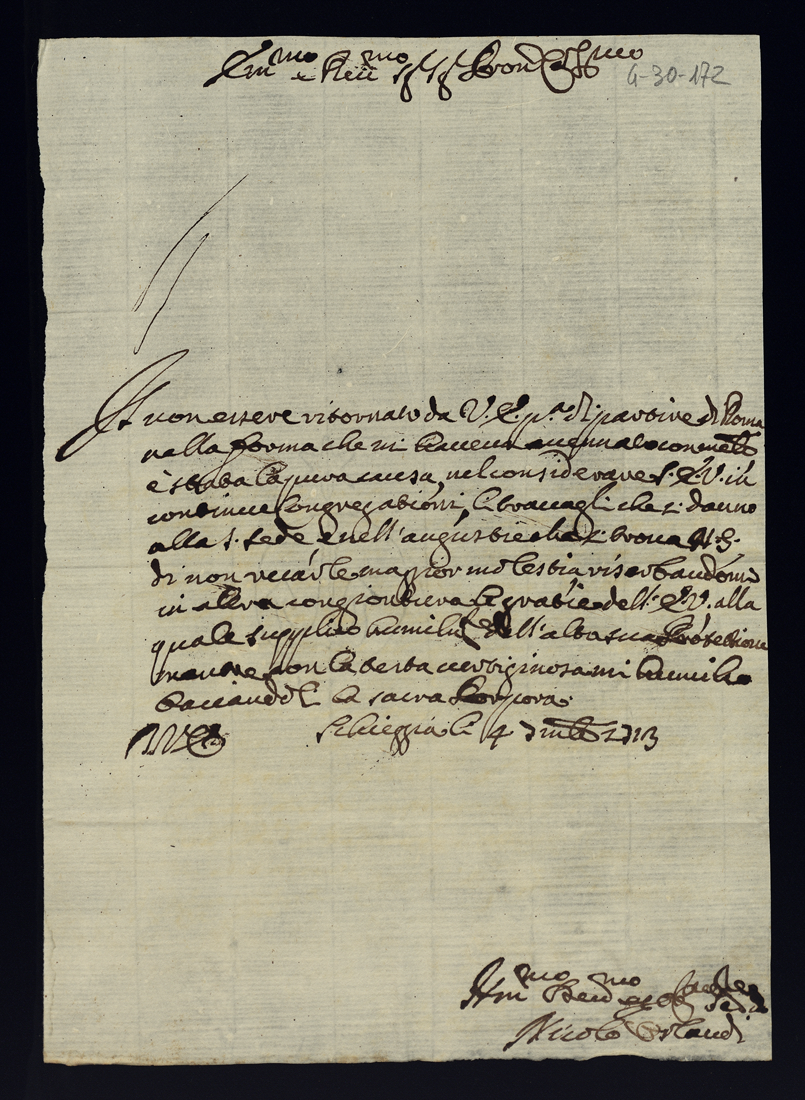 Em.mo e Re.mo Sig. Sig. Pron. Col.mo
4-30-172
Il non essere ritornato da V. E. p.a di partire di Roma
nella forma che mi haveva accennato
è stata la pura causa, nel considerare S. E. V. in
continue Congregationi, li travagli che si danno
alla S. Sede e nell'angustie che si trova N. S.
di non recarle maggior molestia riserbandomi
in altra congiontura le gratie dell'E. V. alla
quale supplico dell'alta sua Protettione
mentre con la testa vertiginosa mi humilio
baciandoli la sacra Porpora.
D. V. E.
Scheggia li 4 1713
Hum.mo Dev.mo et Obb.
Nicolò Orlandi